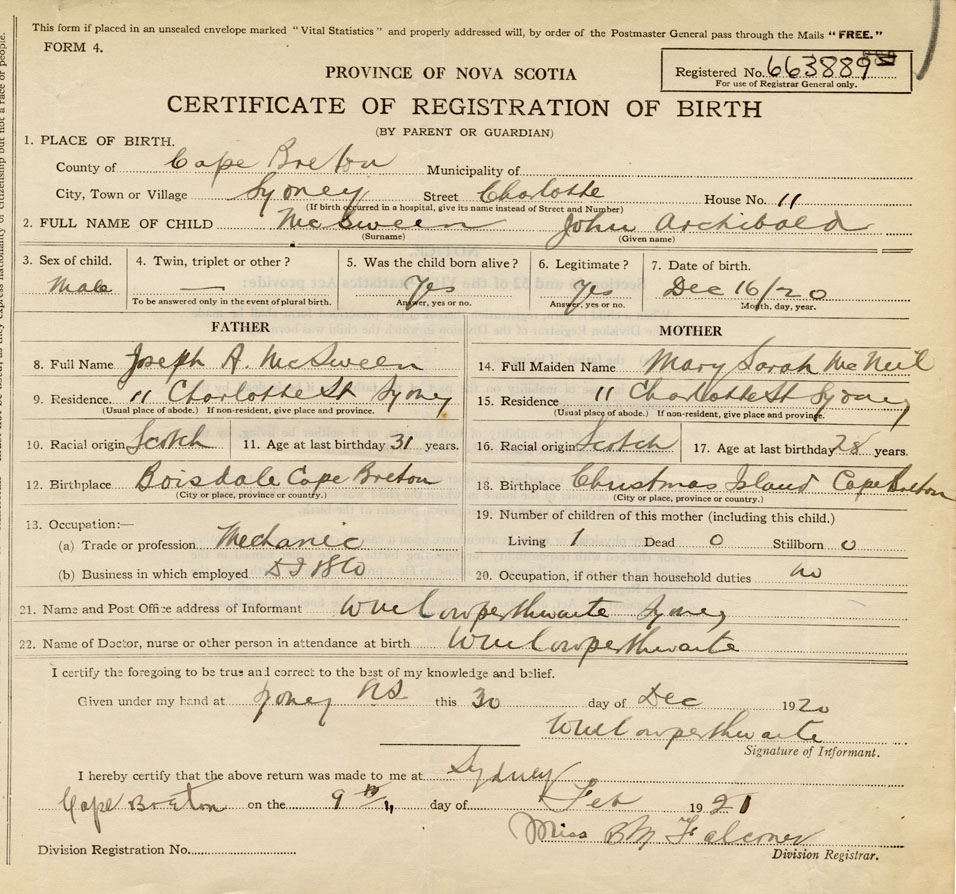 This form if placed in an unsealed envelope marked "Vital Statistics" and properly addressed will, by order of the Postmaster General pass through the Mails "FREE."
FORM 4.
Registered No. 663889
For use of Registrar General only.
PROVINCE OF NOVA SCOTIA
CERTIFICATE OF REGISTRATION OF BIRTH
(BY PARENT OR GUARDIAN)
1. PLACE OF BIRTH.
County of Cape Breton Municipality of
City, Town or Village Sydney Street Charlotte House No. 11
(If birth occurred in a hospital, give its name instead of Street and Number)
2. FULL NAME OF CHILD McSween John Archibald
(Surname) (Given name)
3. Sex of child. 4. Twin, triplet or other? 5. Was the child born alive? 6. Legitimate? 7. Date of birth.
Male — Yes Yes Dec 16/20
To be answered only in the event of plural birth. Answer, yes or no. Answer, yes or no. Month, day, year.
FATHER
8. Full Name Joseph A. McSween
9. Residence. 11 Charlotte St Sydney
(Usual place of abode.) If non-resident, give place and province.
10. Racial origin Scotch 11. Age at last birthday 31 years.
12. Birthplace Boisdale Cape Breton
(City or place, province or country.)
13. Occupation:—
(a) Trade or profession Mechanic
(b) Business in which employed
MOTHER
14. Full Maiden Name Mary Sarah McNeil
15. Residence 11 Charlotte St Sydney
(Usual place of abode.) If non-resident, give place and province.
16. Racial origin Scotch 17. Age at last birthday 28 years.
18. Birthplace Christmas Island Cape Breton
(City or place, province or country.)
19. Number of children of this mother (including this child.)
Living 1 Dead 0 Stillborn 0
20. Occupation, if other than household duties no
21. Name and Post Office address of Informant Cowperthwaite Sydney
22. Name of Doctor, nurse or other person in attendance at birth Cowperthwaite
I certify the foregoing to be true and correct to the best of my knowledge and belief.
Given under my hand at Sydney N.S. this 30 day of Dec 1920
Cowperthwaite
Signature of Informant.
I hereby certify that the above return was made to me at Sydney
Cape Breton on the 9th day of Feb 1921
Miss B M Falconer
Division Registrar.
Division Registration No.